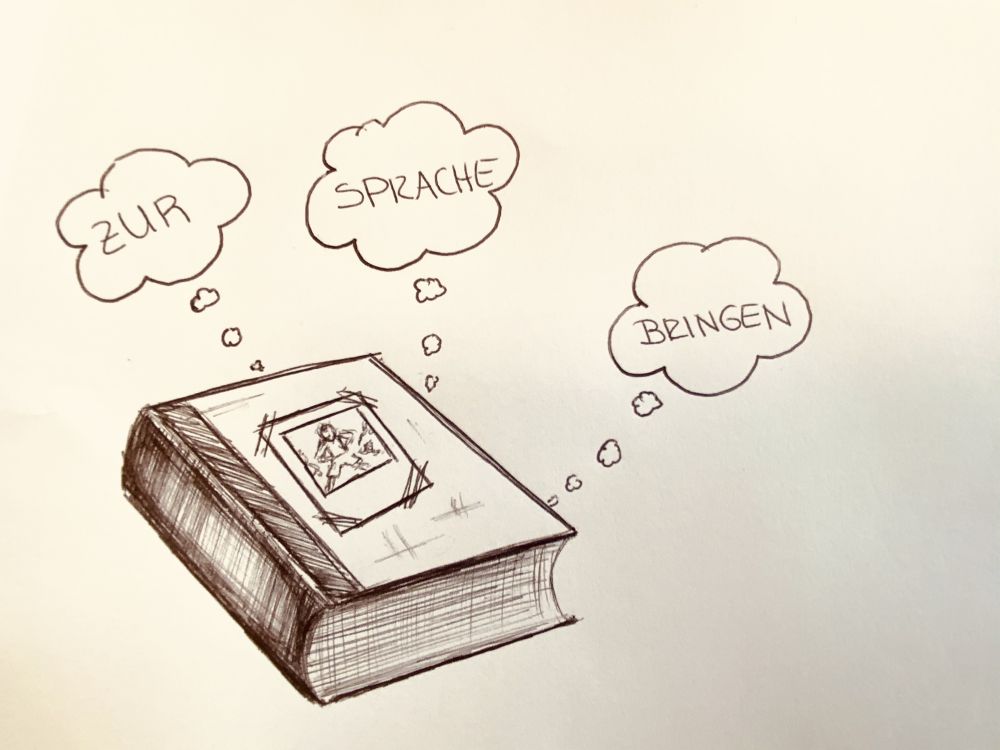 ZUR
SPRACHE
BRINGEN